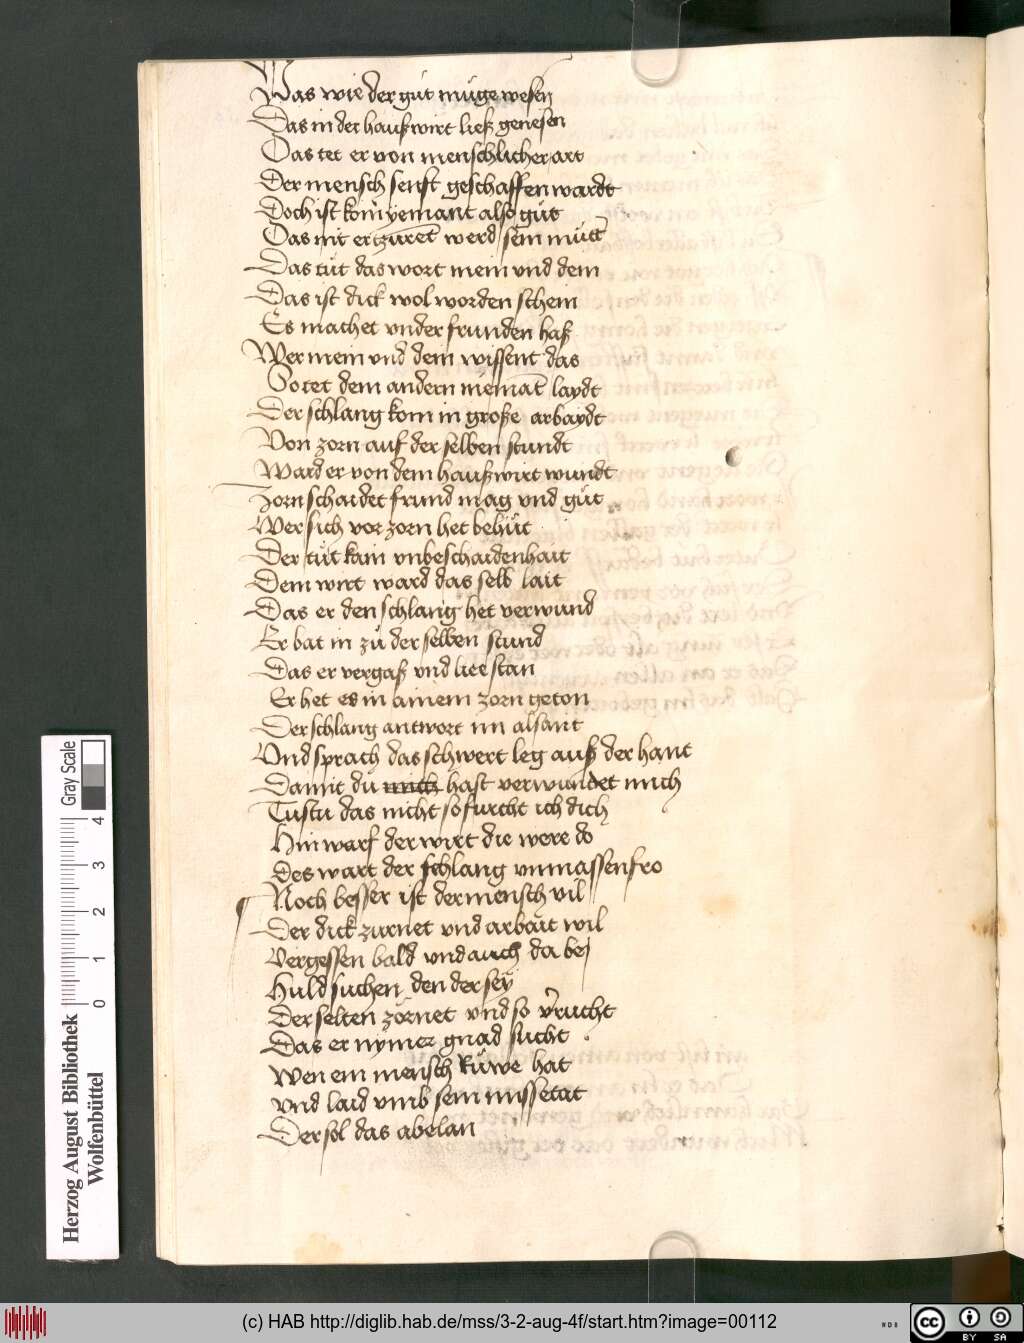 Was wie der gůt muge wesen
Das in der haußwirt ließ genesen
Das tet er von menschlicher art
Der mensch senft geschaffen wardt
Doch ist kom yemant also gůt
Das nit ertzúrét werd sein mutt
Das tút das wort mein vnd dein
Das ist dick wol worden schein
Es machet vnder frunden haß
Wer mein vnd dein wissent das
So tet dem andern niemāt laydt
Der schlang kom in große arbaydt
Von zorn auf der selben stundt
Ward er von dem haußwirt wundt
Zorn schaidet frund mag vnd gůt
Wer sich vor zorn het behůt
Der tút kain vnbeschaidenhait
Dem wirt ward das selb lait
Das er den schlang het verwund
Er bat in zů der selben stund
Das er vergaß vnd liee stan
Er het es in ainem zorn geton
Der schlang antwort im alsant
Vnd sprach das schwert leg auß der hant
Damit du hast verwundet mich
Tustu das nicht so furcht ich dich
Hin warf der wirt die were do
Des wart der schlang vnmassen fro
Noch besser ist der mensch vil
Der dick zurnet vnd arbait wil
Vergessen bald vnd auch da bej
Huld suchen den der seÿ
Der selten zörnet vnd so v̄rucht
Das er nymer gnad sucht
Wen ein mensch Rúwe hat
vnd laid vmb sein missetat
Der sol das abelan
Herzog August Bibliothek
Wolfenbüttel
Gray Scale
0 1 2 3 4
(c) HAB http://diglib.hab.de/mss/3-2-aug-4f/start.htm?image=00112
WDB
cc
BY SA